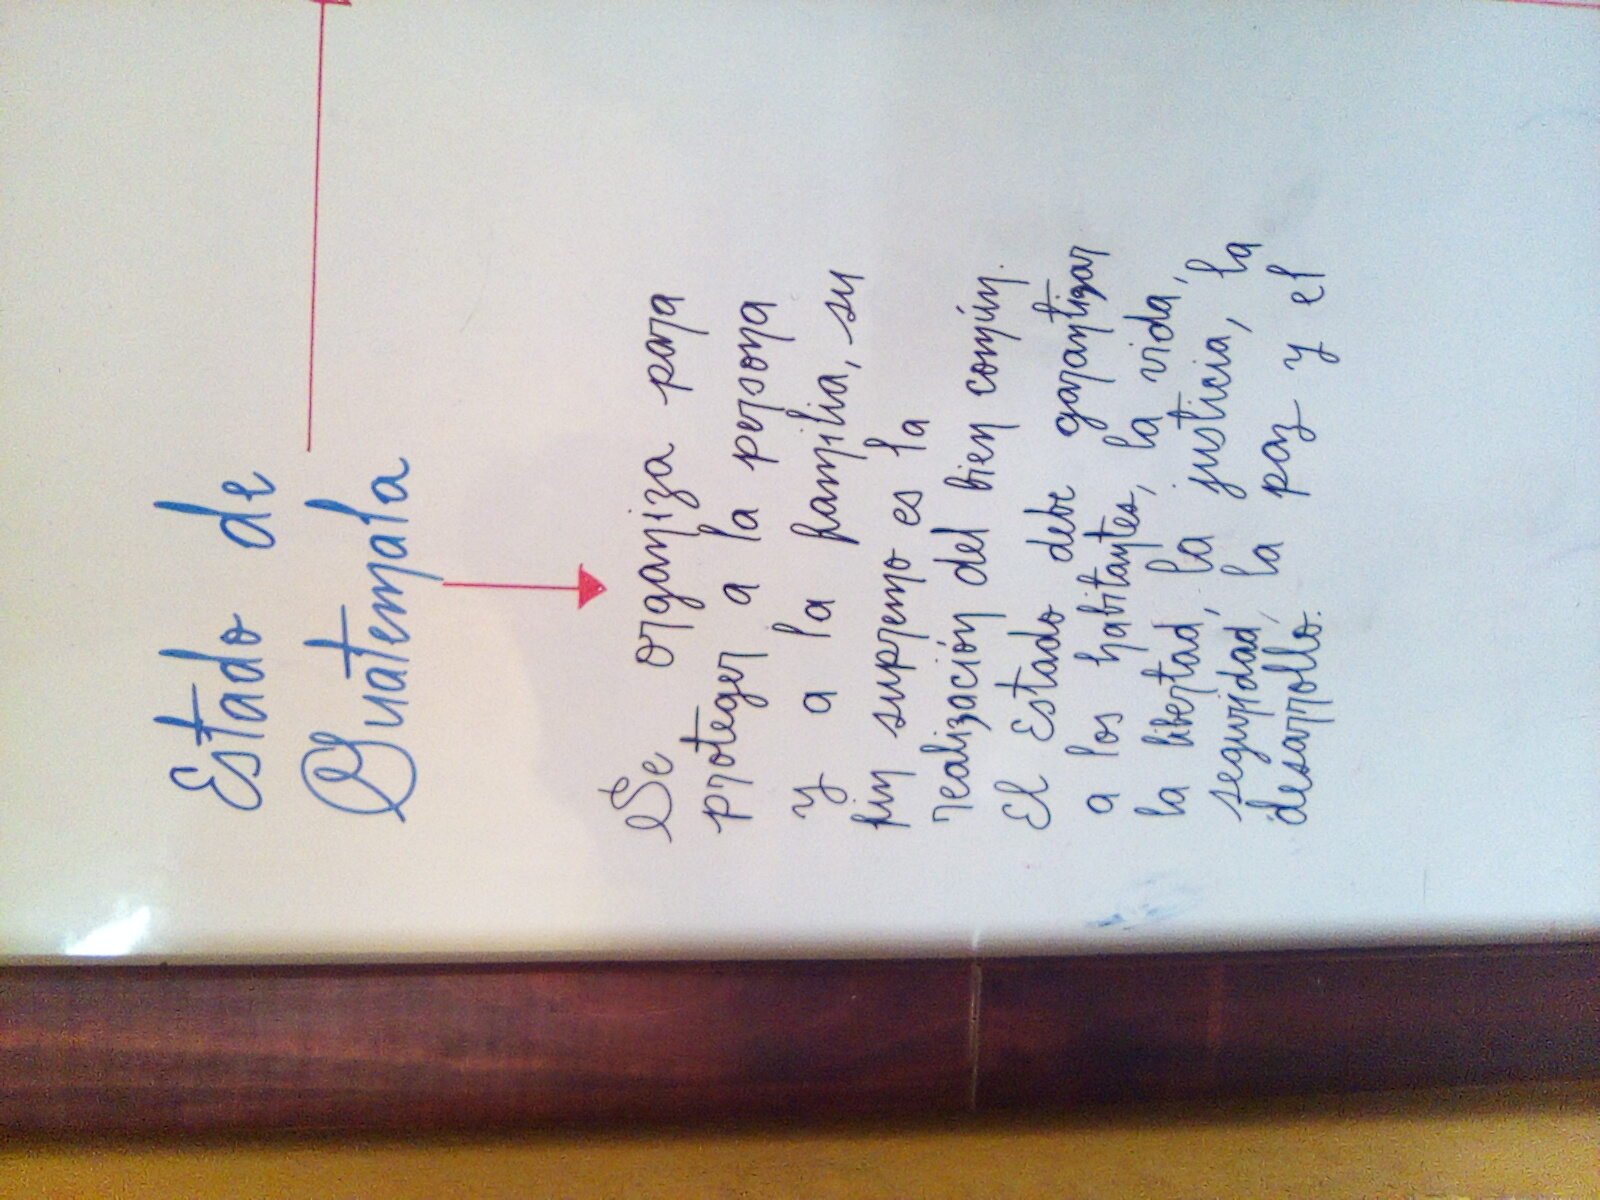 Estado de
Guatemala
Se organiza para
proteger a la persona
y a la familia, su
fin supremo es la
realización del bien común.
El Estado debe garantizar
a los habitantes, la vida,
la libertad, la justicia, la
seguridad, la paz y el
desarrollo.